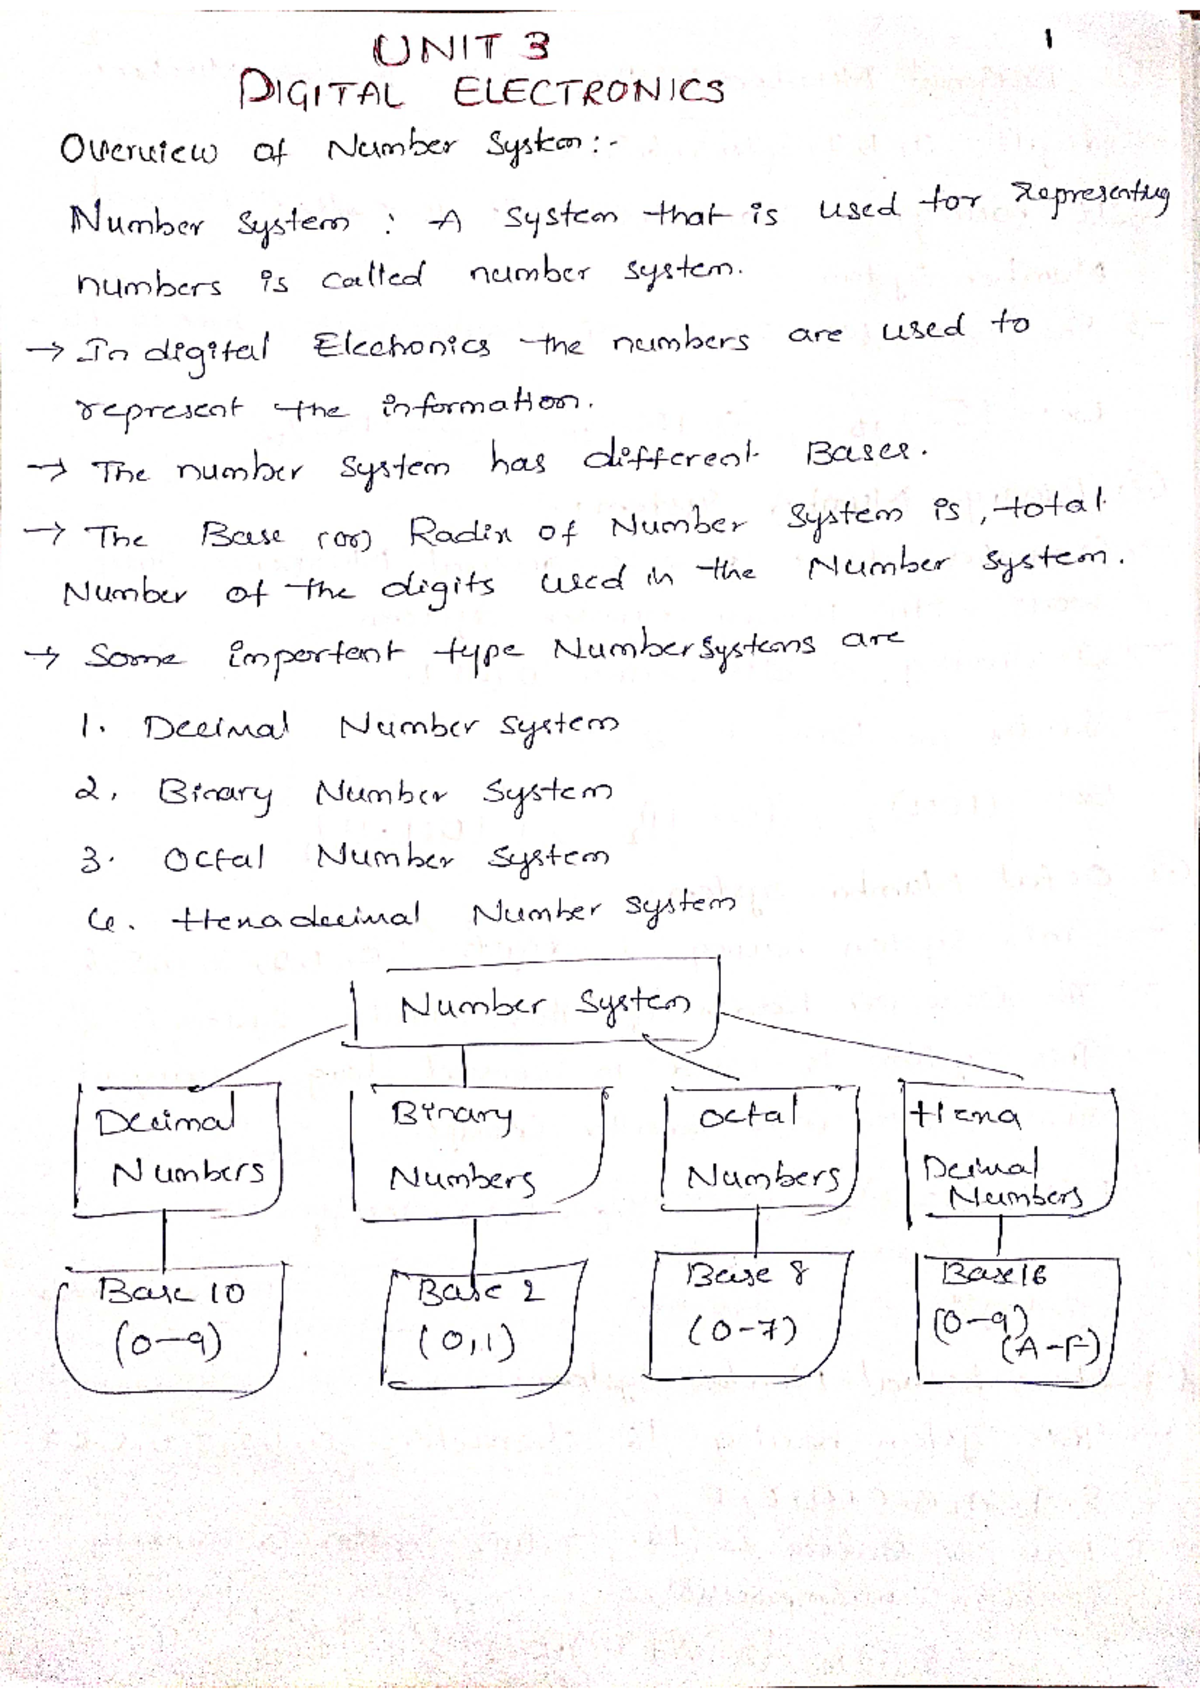 1
UNIT 3
DIGITAL ELECTRONICS
Overview of Number System:-
Number System : A System that is used for representing
numbers is called number system.
→ In digital Electronics the numbers are used to
represent the information.
→ The number System has different Bases.
→ The Base (or) Radix of Number System is, total
Number of the digits used in the Number System.
→ Some important type Number Systems are
1. Decimal Number System
2. Binary Number System
3. Octal Number System
4. Hexadecimal Number System
Number System
Decimal
Numbers
Binary
Numbers
Octal
Numbers
Hexa
Decimal
Numbers
Base 10
(0-9)
Base 2
(0,1)
Base 8
(0-7)
Base 16
(0-9)
(A-F)